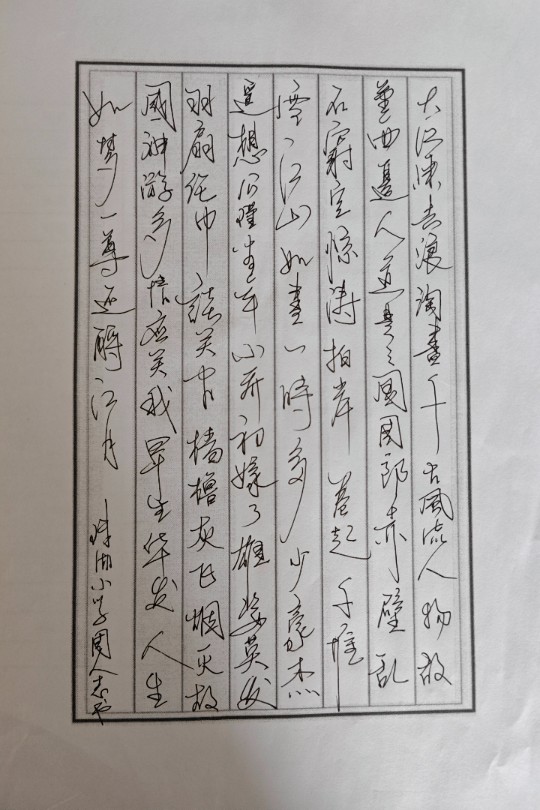 大江東去浪淘盡千古風流人物故
壘西邊人道是三國周郎赤壁乱
石穿空惊涛拍岸卷起千堆
雪江山如畫一時多少豪杰
遥想公瑾当年小乔初嫁了雄姿英发
羽扇纶巾談笑间樯櫓灰飞烟灭故
國神游多情应笑我早生华发人生
如梦一尊还酹江月
小学周人志